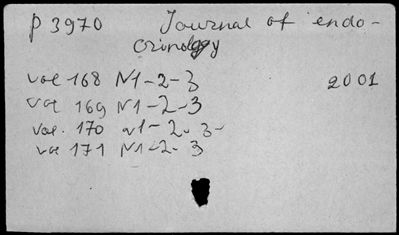 p 3970 Journal of endo-
crinology
vol 168 N1-2-3 2001
vol 169 N1-2-3
vol. 170 N1-2-3-
vol 171 N1-2-3